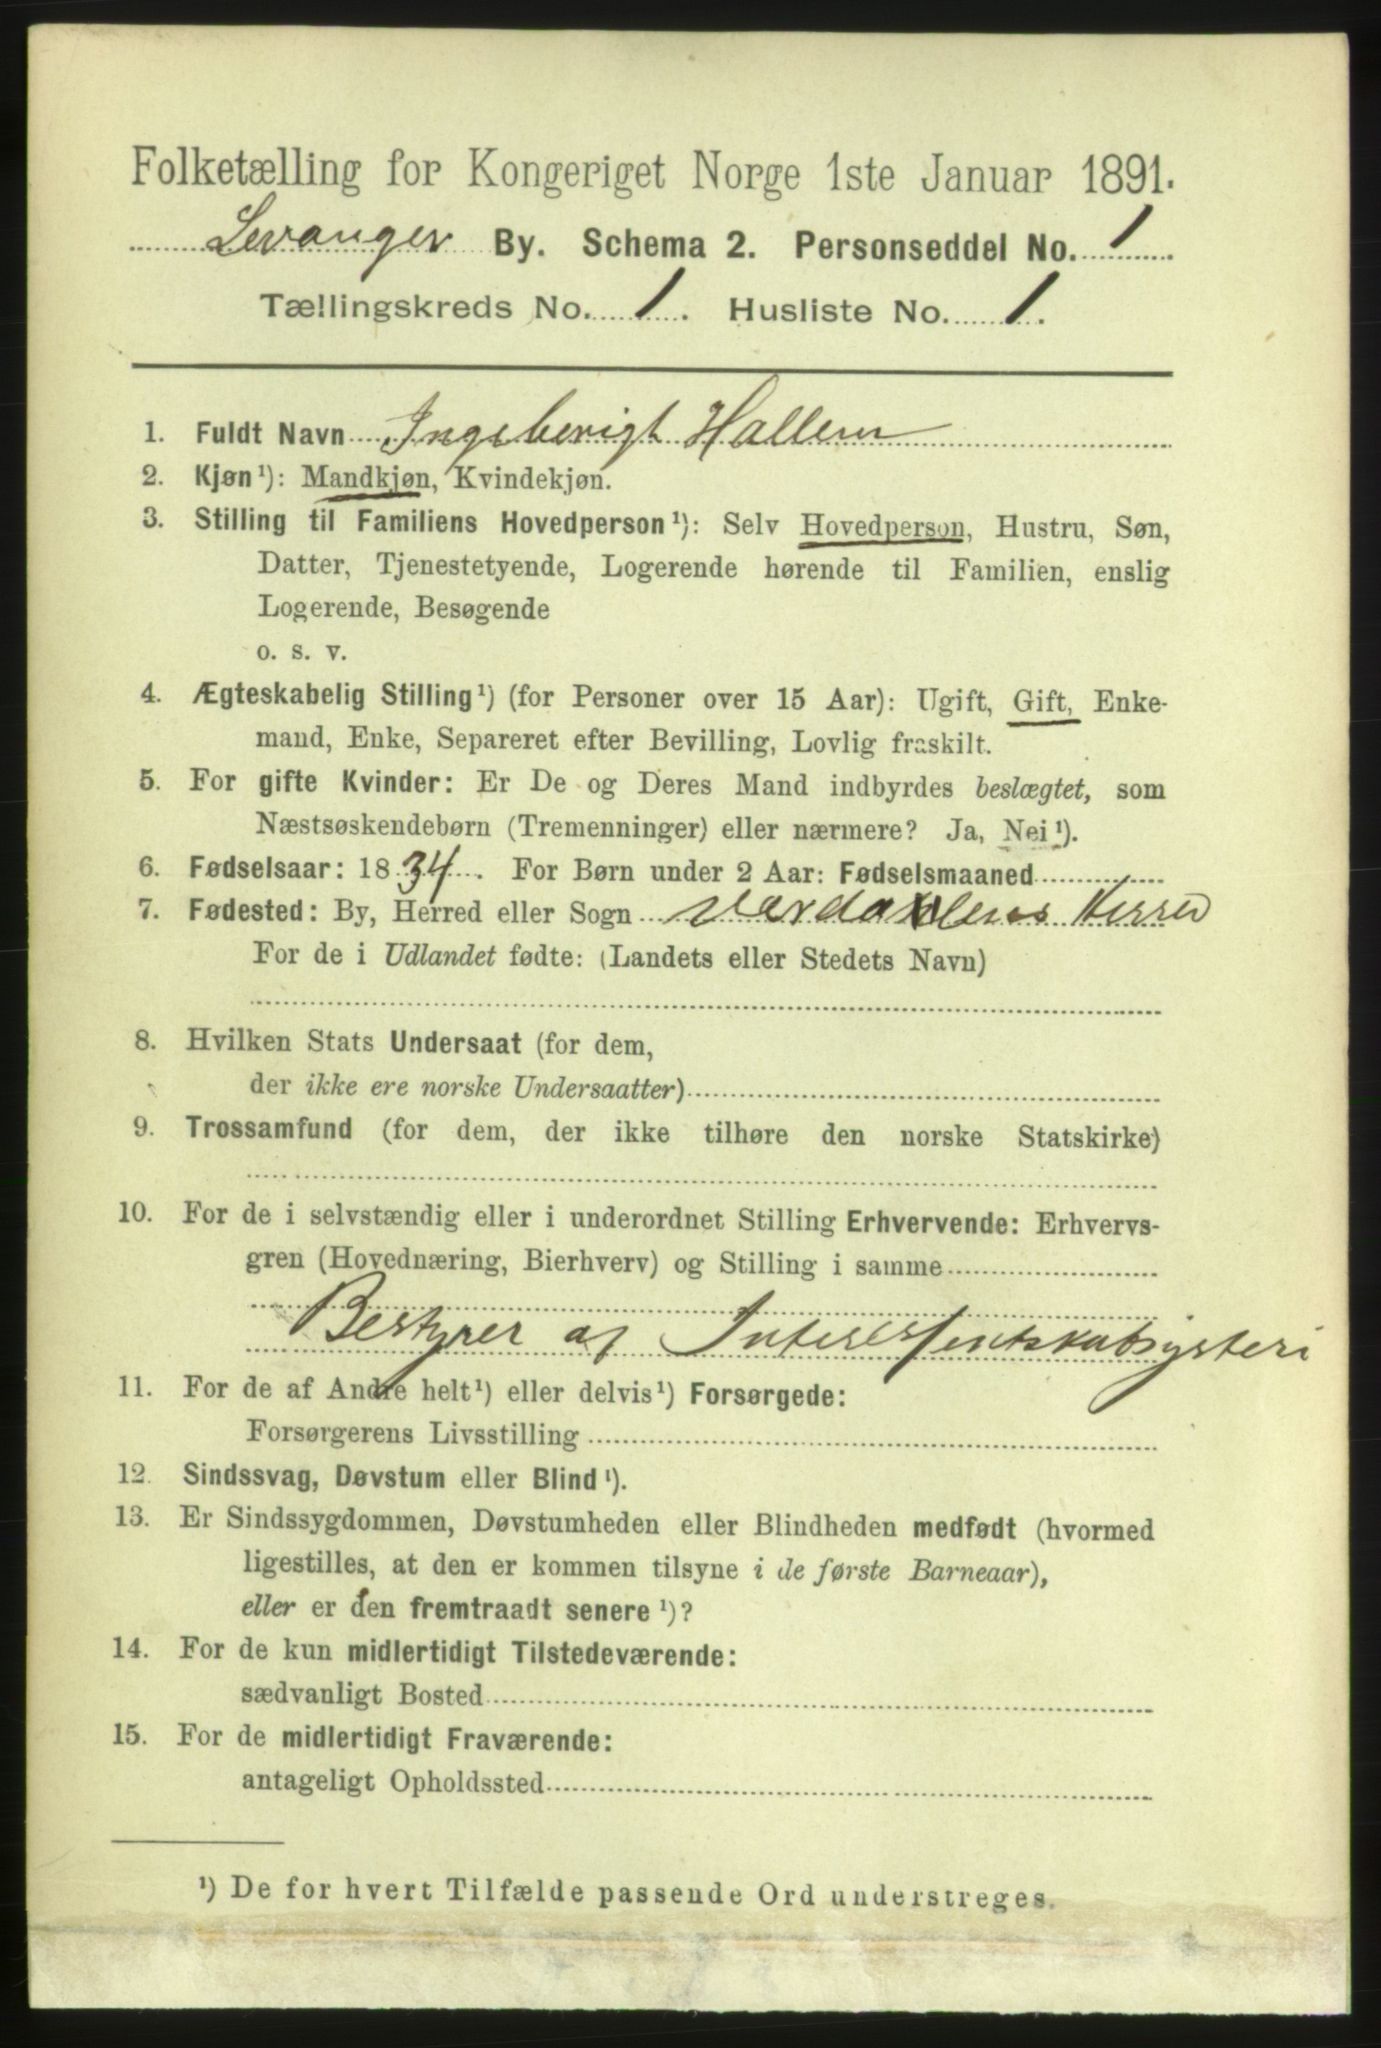 Folketælling for Kongeriget Norge 1ste Januar 1891.
Levanger By. Schema 2. Personseddel No. 1
Tællingskreds No. 1. Husliste No. 1.
1. Fuldt Navn Ingeberigt Hallem
2. Kjøn¹): Mandkjøn, Kvindekjøn.
3. Stilling til Familiens Hovedperson¹): Selv Hovedperson, Hustru, Søn,
Datter, Tjenestetyende, Logerende hørende til Familien, enslig
Logerende, Besøgende
o. s. v.
4. Ægteskabelig Stilling¹) (for Personer over 15 Aar): Ugift, Gift, Enke-
mand, Enke, Separeret efter Bevilling, Lovlig fraskilt.
5. For gifte Kvinder: Er De og Deres Mand indbyrdes beslægtet, som
Næstsøskendebørn (Tremenninger) eller nærmere? Ja, Nei¹).
6. Fødselsaar: 1834. For Børn under 2 Aar: Fødselsmaaned
7. Fødested: By, Herred eller Sogn Værdalens Herred
For de i Udlandet fødte: (Landets eller Stedets Navn)
8. Hvilken Stats Undersaat (for dem,
der ikke ere norske Undersaatter)
9. Trossamfund (for dem, der ikke tilhøre den norske Statskirke)
10. For de i selvstændig eller i underordnet Stilling Erhvervende: Erhvervs-
gren (Hovednæring, Bierhverv) og Stilling i samme
Bestyrer af Interessentskabsysteri
11. For de af Andre helt¹) eller delvis¹) Forsørgede:
Forsørgerens Livsstilling
12. Sindssvag, Døvstum eller Blind¹).
13. Er Sindssygdommen, Døvstumheden eller Blindheden medfødt (hvormed
ligestilles, at den er kommen tilsyne i de første Barneaar),
eller er den fremtraadt senere¹)?
14. For de kun midlertidigt Tilstedeværende:
sædvanligt Bosted
15. For de midlertidigt Fraværende:
antageligt Opholdssted
¹) De for hvert Tilfælde passende Ord understreges.